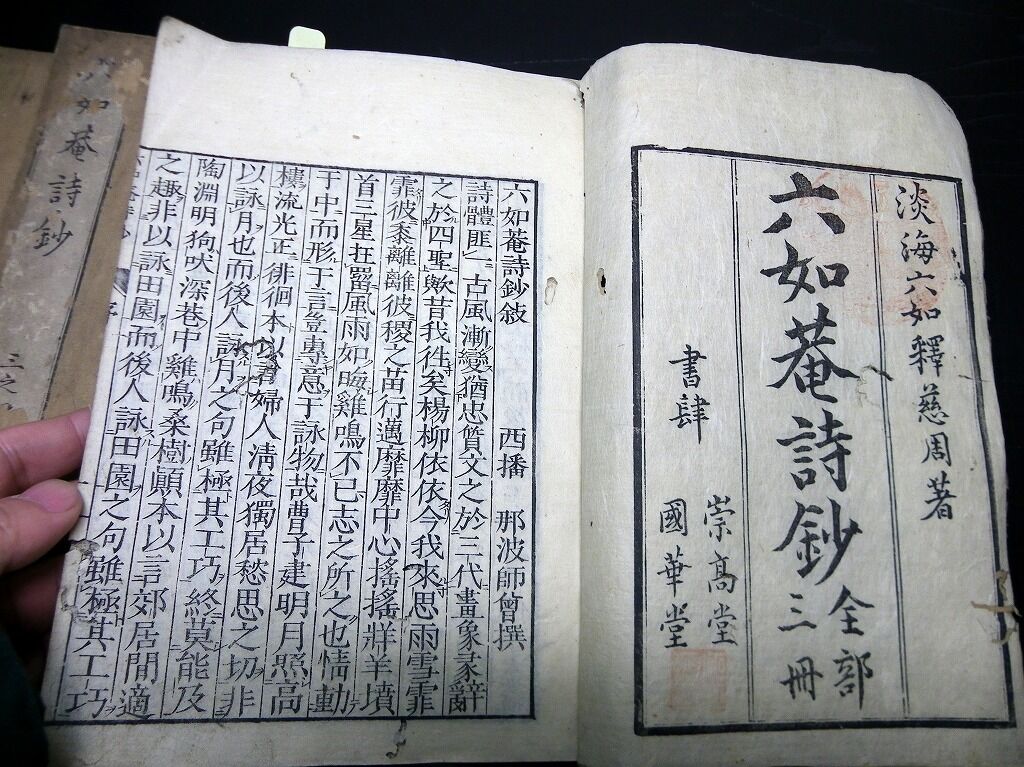 淡海六如釋慈周著
六如菴詩鈔 全部三冊
書肆 崇高堂
國華堂
六如菴詩鈔敍
西播 那波師曾撰
詩體匪一古風漸變猶忠質文之於三代畫象彖辭
之於四聖歟昔我徃矣楊柳依依今我來思雨雪霏
霏彼黍離離彼稷之苗行邁靡靡中心搖搖牂羊墳
首三星在罶風雨如晦雞鳴不已志之所之也情動
于中而形于言豈專意于詠物哉曹子建明月照高
樓流光正徘徊本以著婦人淸夜獨居愁思之切非
以詠月也而後人詠月之句雖極其工巧終莫能及
陶淵明狗吠深巷中雞鳴桑樹顚本以言郊居閒適
之趣非以詠田園而後人詠田園之句雖極其工巧
六如菴詩鈔
三之